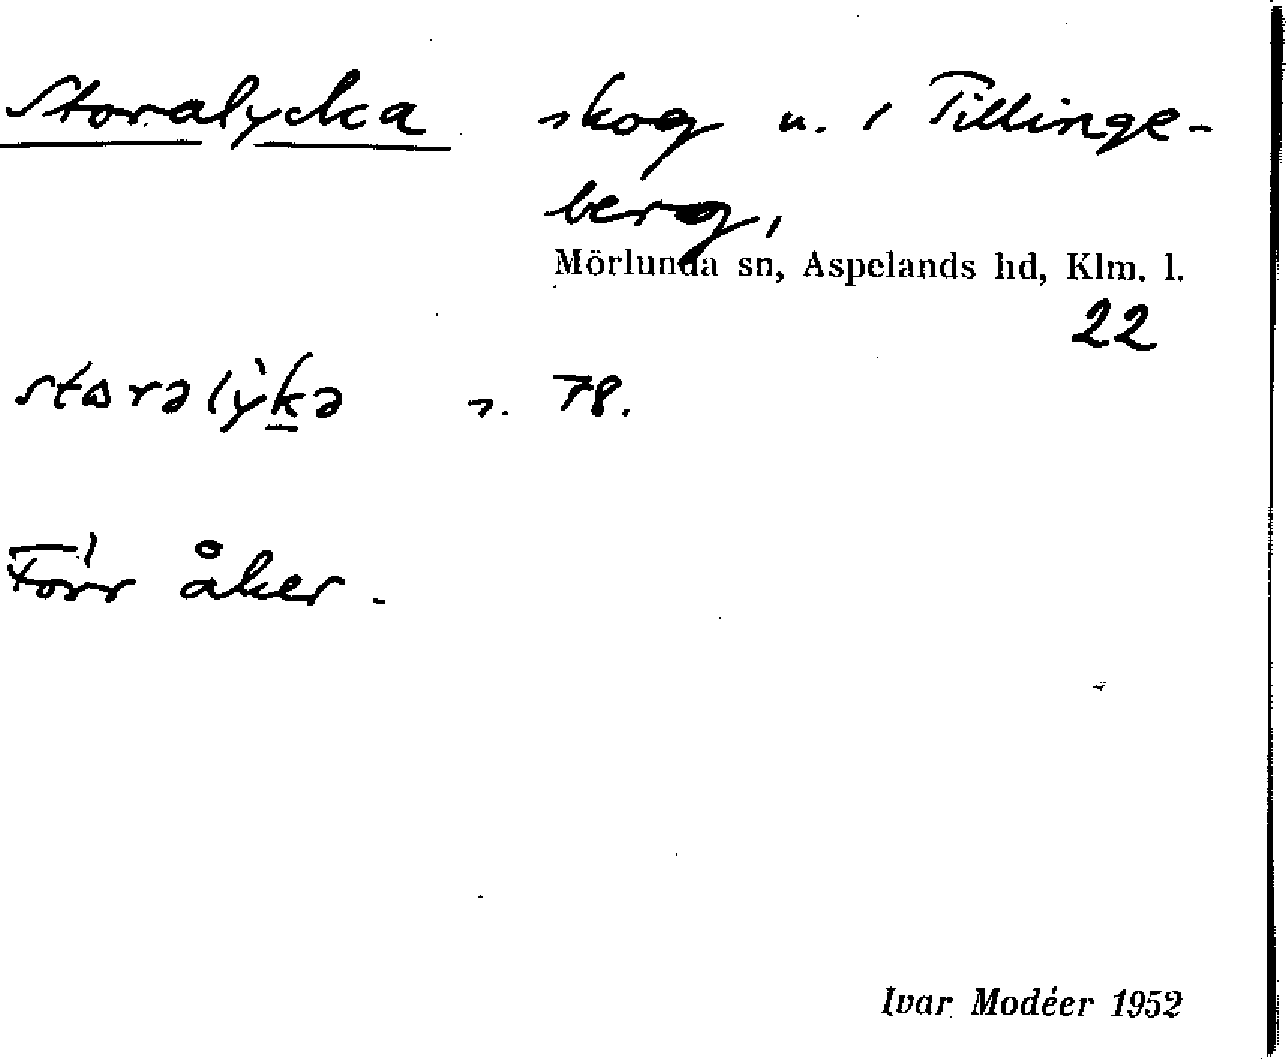 Storalycka skog u. 1 Tillinge-
berg,
Mörlunda sn, Aspelands hd, Klm. l.
22
storəlỳkə s. 78.
Förr åker.
Ivar Modéer 1952